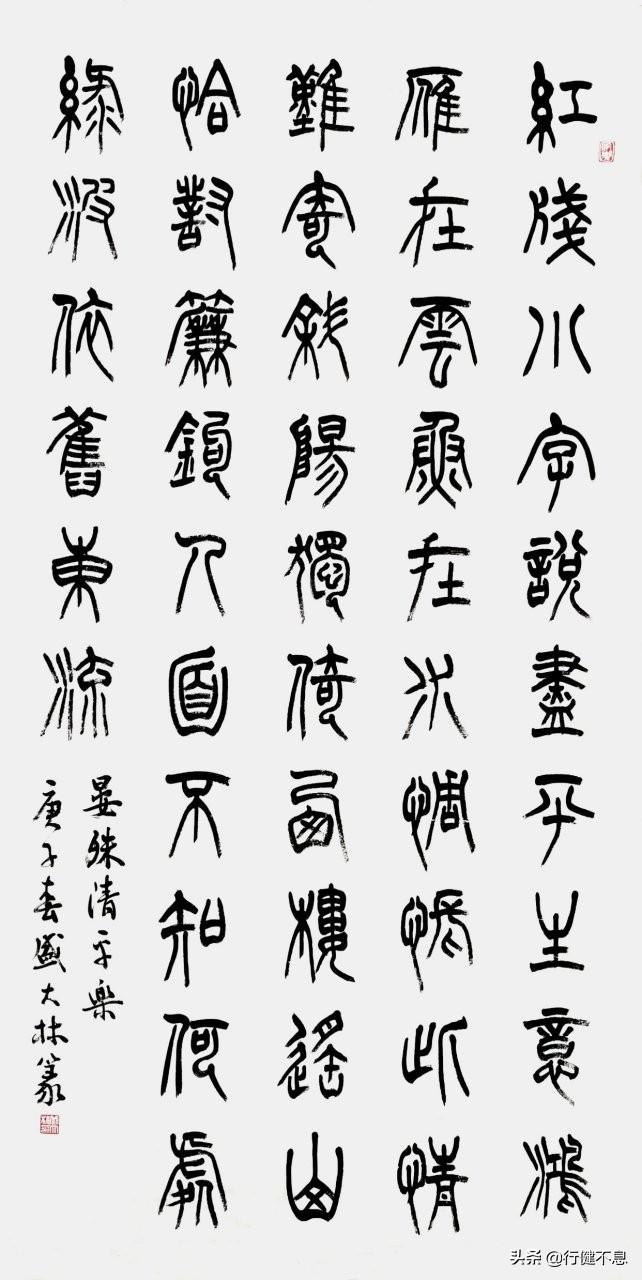 紅牋小字說盡平生意鴻
雁在雲魚在水惆悵此情
難寄斜陽獨倚西樓遙山
恰對簾鉤人面不知何處
綠波依舊東流
晏殊清平樂
庚子春盛大林篆
头条 @行健不息